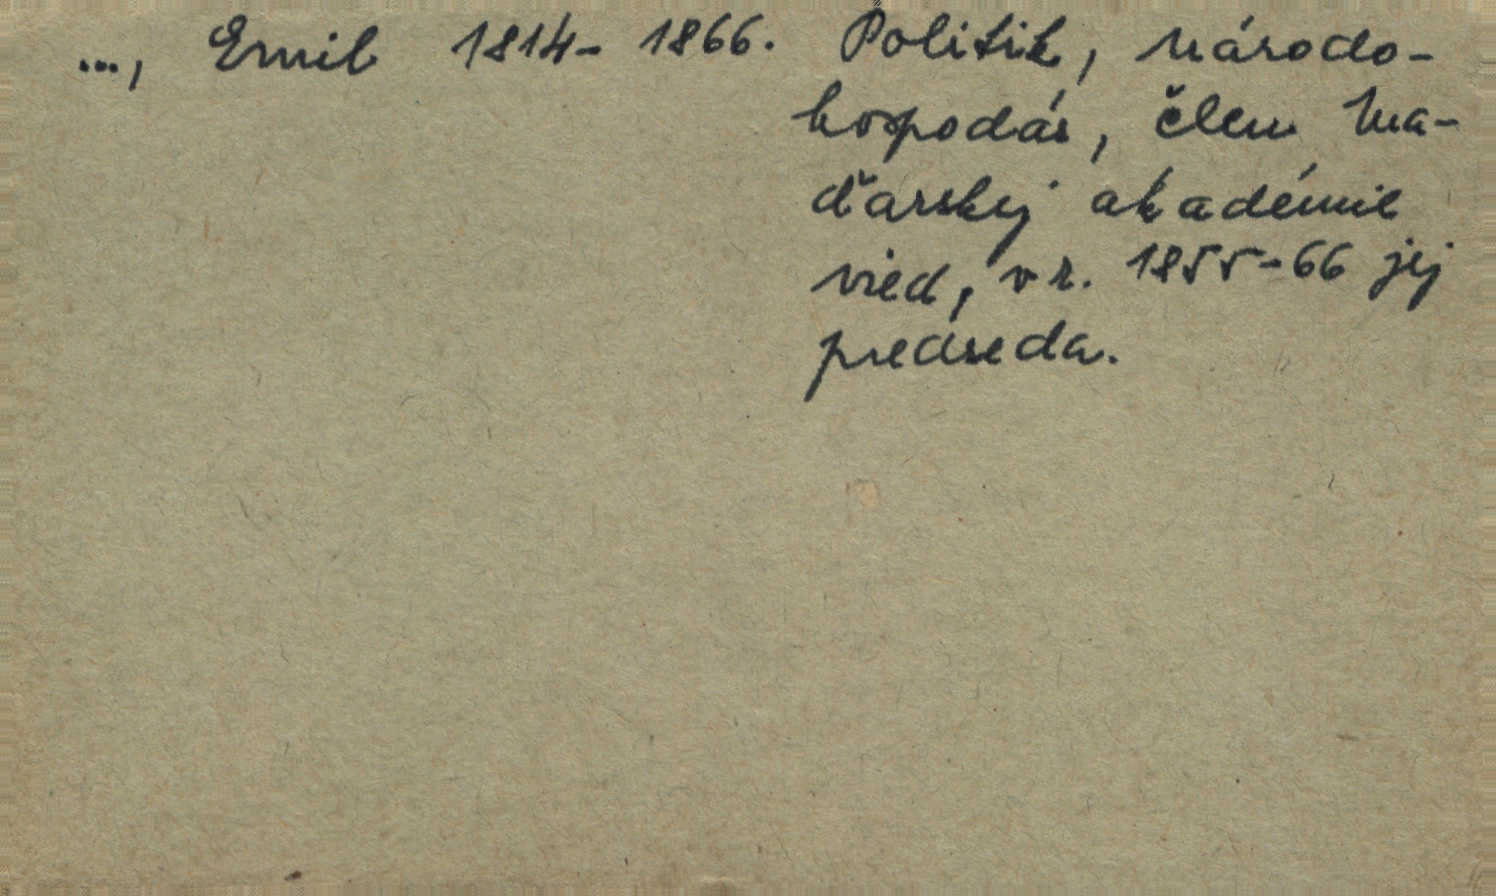 ..., Emil 1814- 1866. Politik, národo-
hospodár, člen Ma-
ďarskej akadémie
vied, v r. 1855-66 jej
predseda.